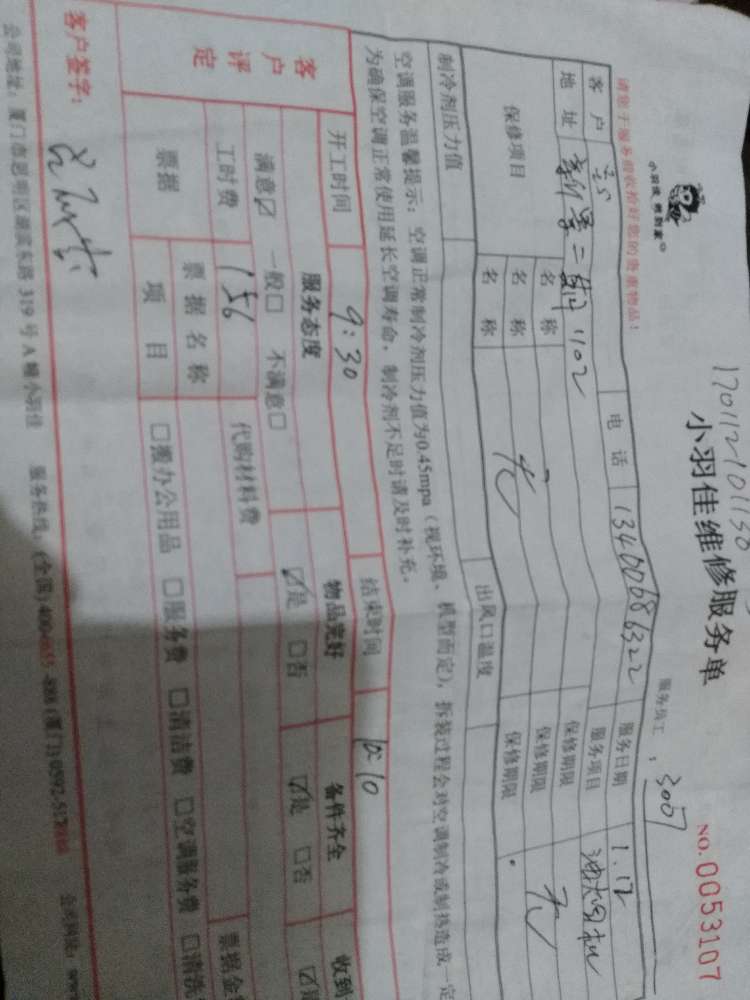 170112101130
小羽佳维修服务单
NO.0053107
小羽佳 帮到家
服务员工：3007
请您于服务前收拾好您的贵重物品！
客户 电话 13400686322 服务日期 1.12
地址 二 1102 服务项目 油烟机
保修项目 名称 保修期限
名称 无 保修期限 无
名称 保修期限
制冷剂压力值 出风口温度
空调服务温馨提示：空调正常制冷剂压力值为0.45mpa（视环境、机型而定），拆装过程会对空调制冷或制热造成一定
为确保空调正常使用延长空调寿命，制冷剂不足时请及时补充。
开工时间 9:30 结束时间 10:10
客户评定 服务态度 物品完好 备件齐全 收到
满意☑ 一般□ 不满意□ ☑是 □否 ☑是 □否
工时费 156 代购材料费
票据 票据名称 票据金
项目 □搬办公用品 □服务费 □清洁费 □空调服务费 □清洗
客户签字：
公司地址：厦门市思明区湖滨东路319号A幢小羽佳 服务热线：(全国)400- -888 (厦门)0592-